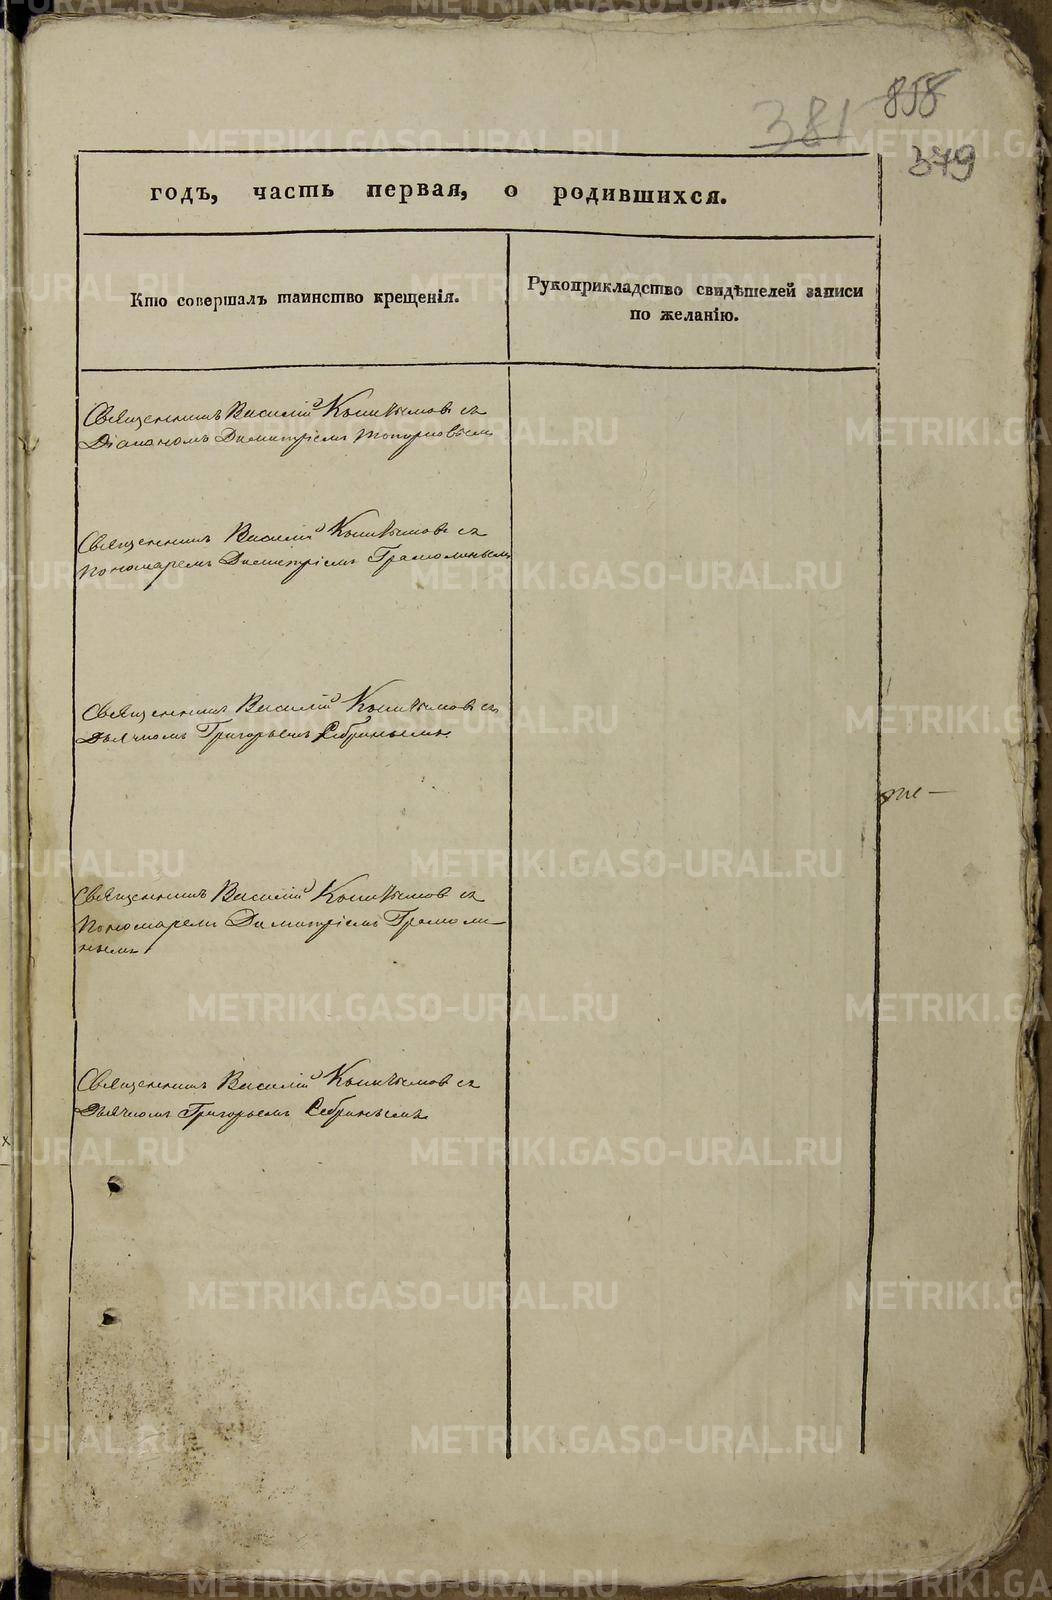 858
381
379
годъ, часть первая, о родившихся.
Кто совершалъ таинство крещенія.
Рукоприкладство свидѣтелей записи
по желанію.
Священникъ Василій съ
Діакономъ Димитріемъ Топорковымъ
Священникъ Василій съ
Пономаремъ Димитріемъ Грамолинымъ
Священникъ Василій съ
Дьячкомъ Григорьемъ
Священникъ Василій съ
Пономаремъ Димитріемъ Грамоли-
нымъ
Священникъ Василій съ
Дьячкомъ Григорьемъ
METRIKI.GASO-URAL.RU